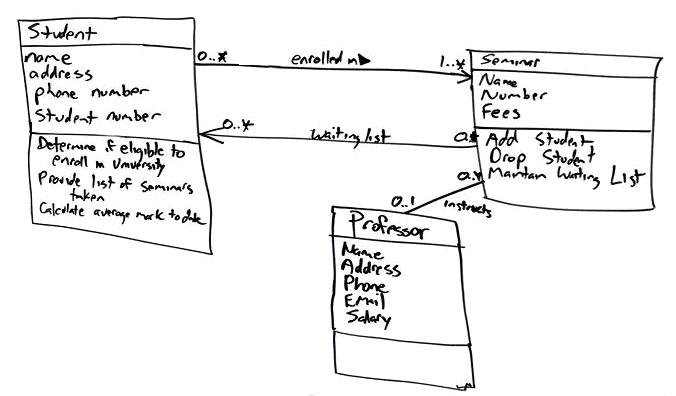 Student
name
address
phone number
Student number
Determine if eligible to
enroll in University
Provide list of Seminars
taken
Calculate average mark to date
0..*
enrolled in
1..*
0..*
Waiting list
0..*
Seminar
Name
Number
Fees
Add Student
Drop Student
Maintain Waiting List
0..*
instructs
0..1
Professor
Name
Address
Phone
Email
Salary